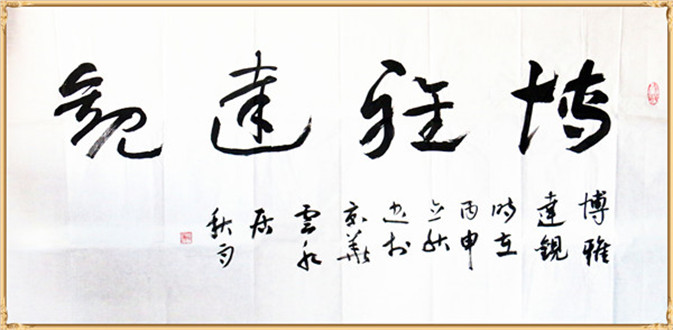 博雅達觀
博雅
達觀
時在
丙申
立秋
書於
京華
雲水
居
秋